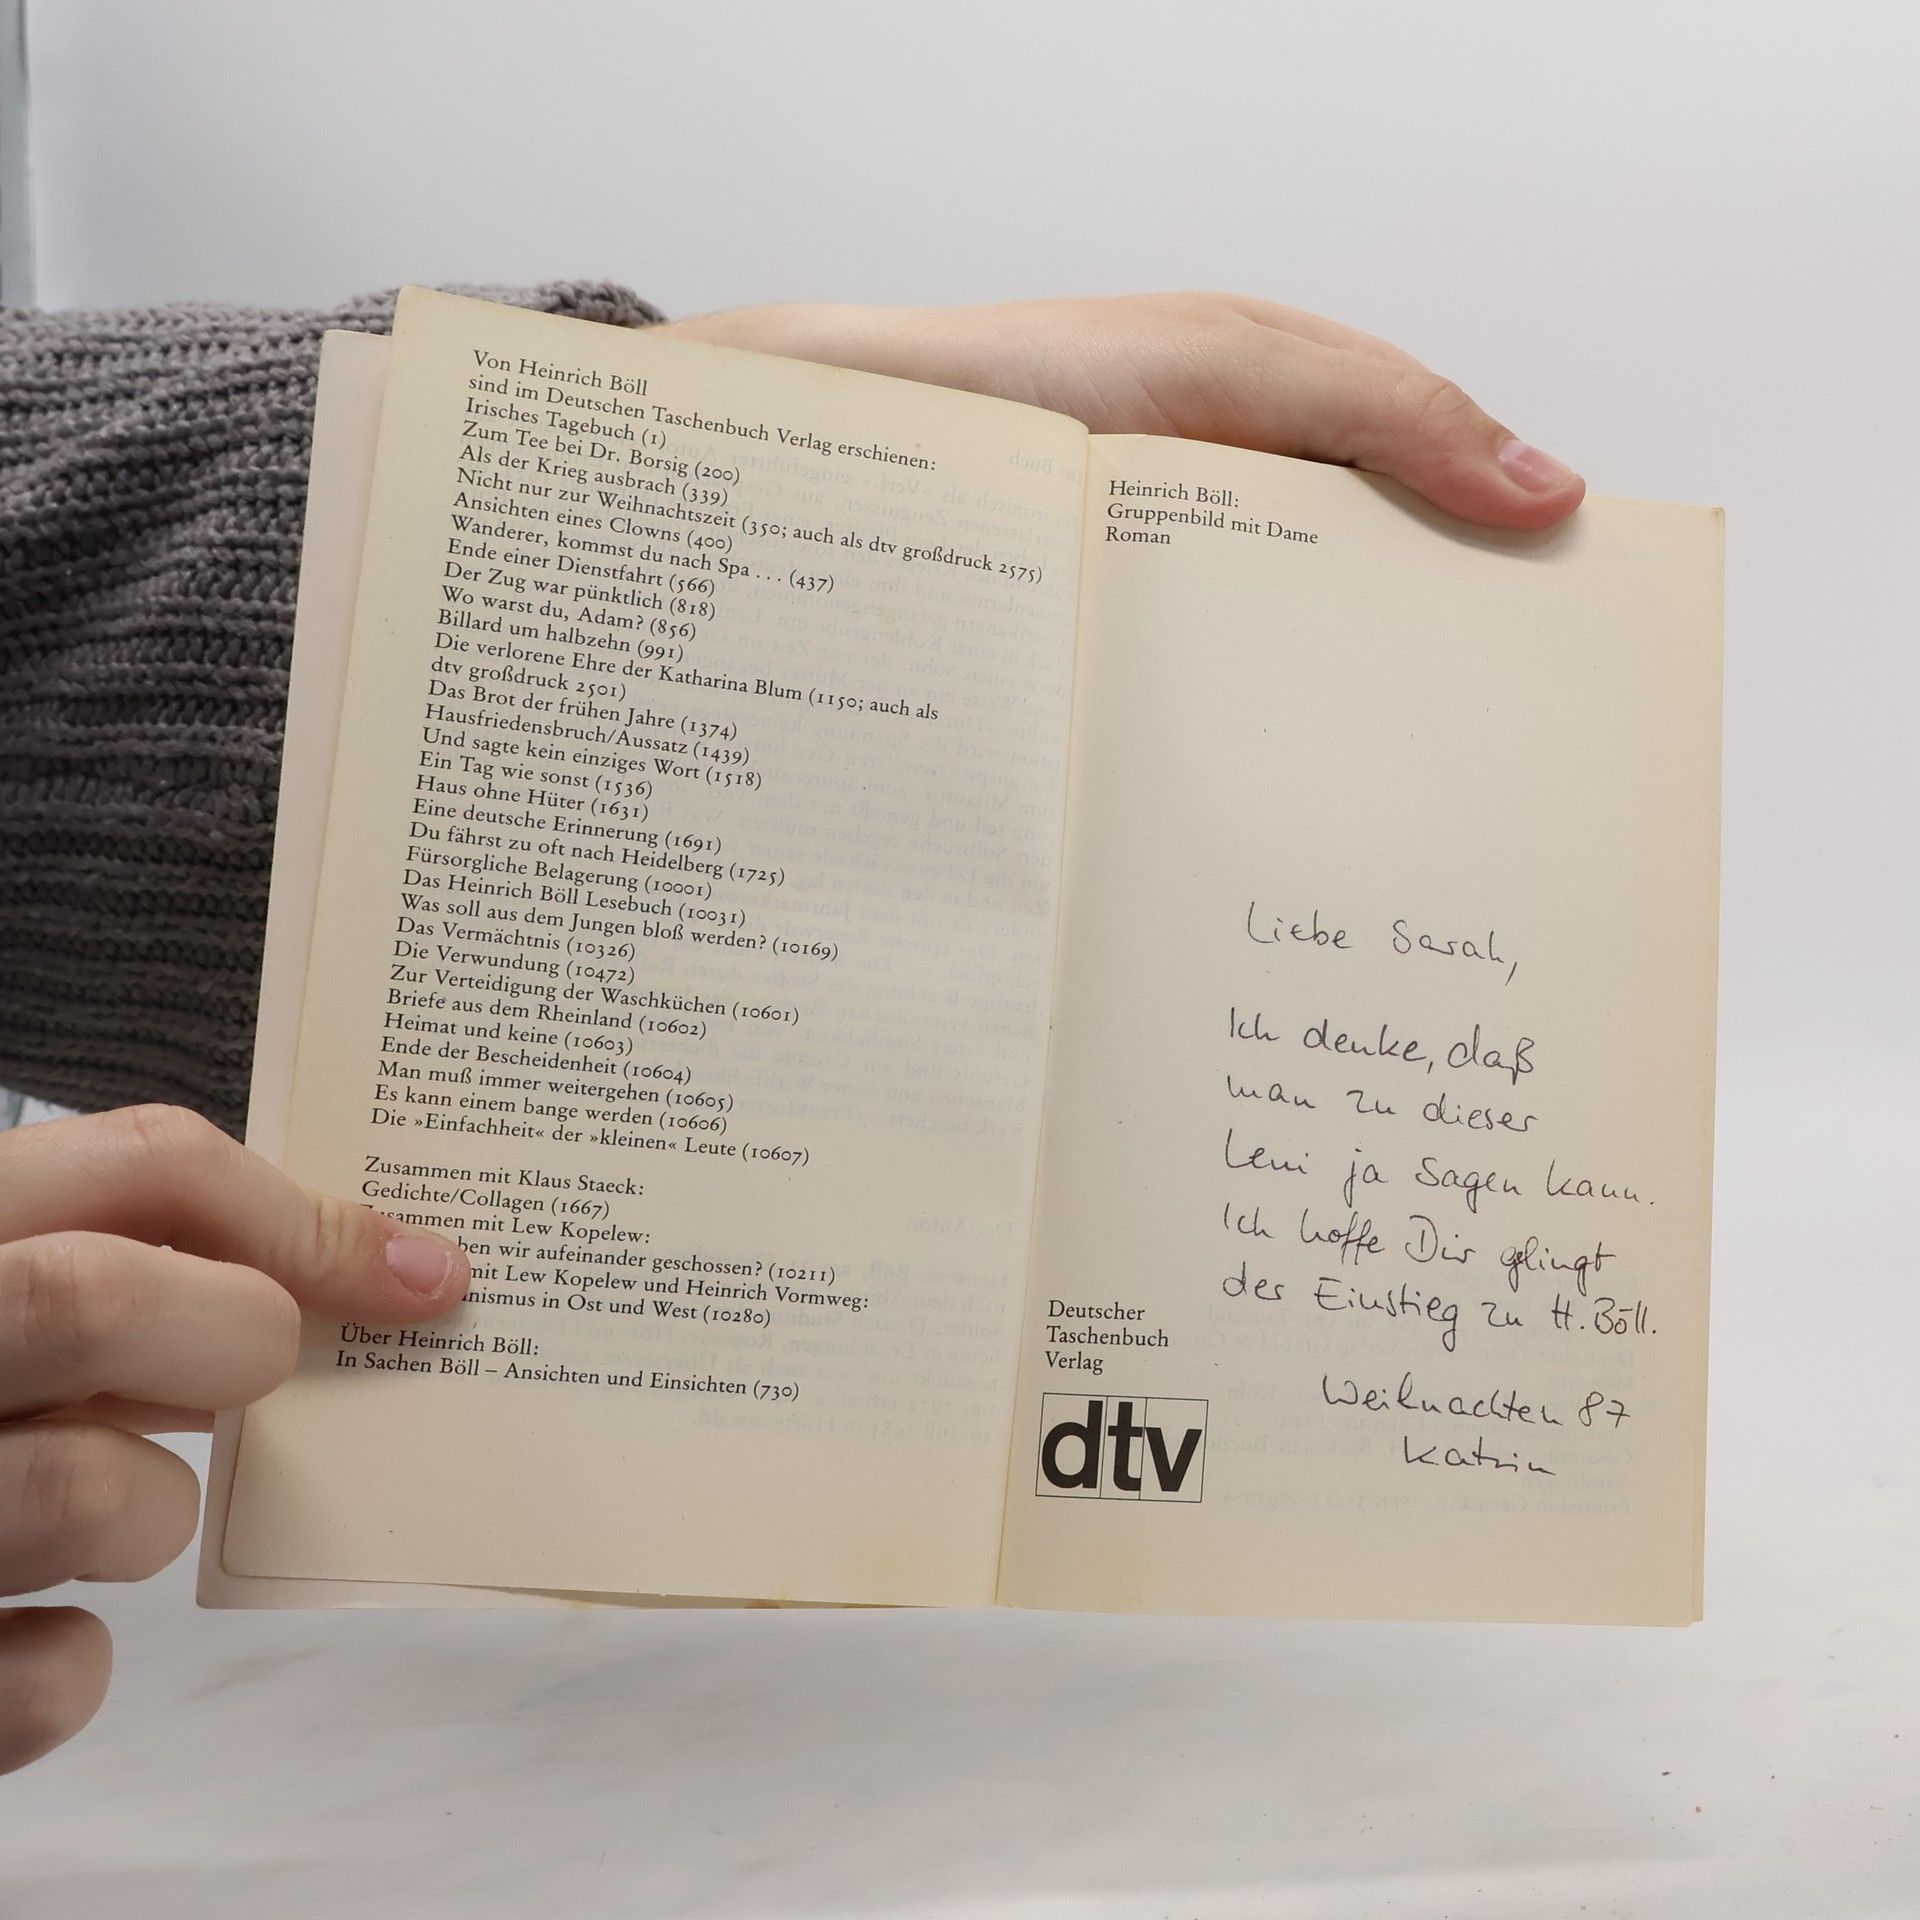 Von Heinrich Böll
sind im Deutschen Taschenbuch Verlag erschienen:
Irisches Tagebuch (1)
Zum Tee bei Dr. Borsig (200)
Als der Krieg ausbrach (339)
Nicht nur zur Weihnachtszeit (350; auch als dtv großdruck 2575)
Ansichten eines Clowns (400)
Wanderer, kommst du nach Spa . . . (437)
Ende einer Dienstfahrt (566)
Der Zug war pünktlich (818)
Wo warst du, Adam? (856)
Billard um halbzehn (991)
Die verlorene Ehre der Katharina Blum (1150; auch als
dtv großdruck 2501)
Das Brot der frühen Jahre (1374)
Hausfriedensbruch/Aussatz (1439)
Und sagte kein einziges Wort (1518)
Ein Tag wie sonst (1536)
Haus ohne Hüter (1631)
Eine deutsche Erinnerung (1691)
Du fährst zu oft nach Heidelberg (1725)
Fürsorgliche Belagerung (10001)
Das Heinrich Böll Lesebuch (10031)
Was soll aus dem Jungen bloß werden? (10169)
Das Vermächtnis (10326)
Die Verwundung (10472)
Zur Verteidigung der Waschküchen (10601)
Briefe aus dem Rheinland (10602)
Heimat und keine (10603)
Ende der Bescheidenheit (10604)
Man muß immer weitergehen (10605)
Es kann einem bange werden (10606)
Die »Einfachheit« der »kleinen« Leute (10607)
Zusammen mit Klaus Staeck:
Gedichte/Collagen (1667)
Zusammen mit Lew Kopelew:
wir aufeinander geschossen? (10211)
mit Lew Kopelew und Heinrich Vormweg:
in Ost und West (10280)
Über Heinrich Böll:
In Sachen Böll – Ansichten und Einsichten (730)
Heinrich Böll:
Gruppenbild mit Dame
Roman
Liebe Sarah,
Ich denke, daß
man zu dieser
Leni ja sagen kann.
Ich hoffe Dir gelingt
der Einstieg zu H. Böll.
Weihnachten 87
Katrin
Deutscher
Taschenbuch
Verlag
dtv